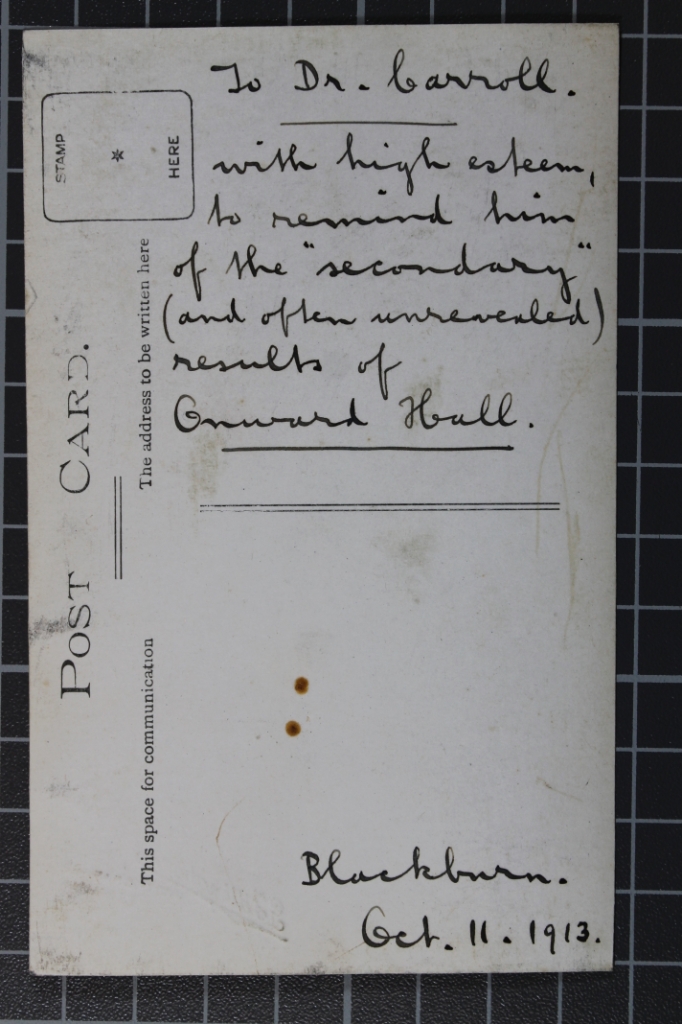 To Dr. Carroll.
with high esteem,
to remind him
of the "secondary"
(and often unrevealed)
results of
Onward Hall.
Blackburn.
Oct. 11. 1913.
POST CARD.
STAMP
*
HERE
The address to be written here
This space for communication